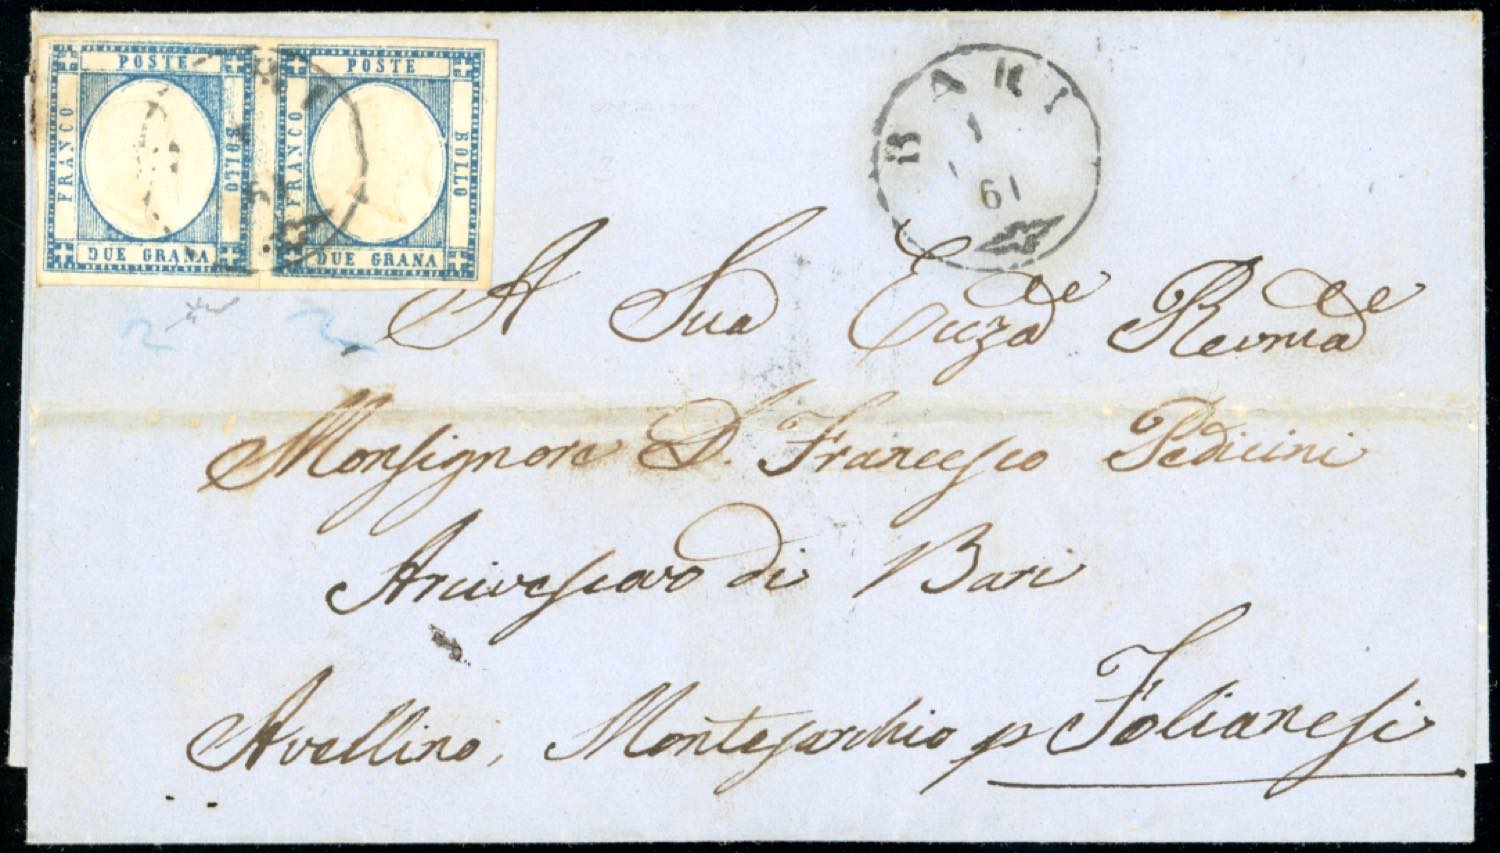 POSTE POSTE
FRANCO BOLLO FRANCO BOLLO
DUE GRANA DUE GRANA
BARI
1
61
2 2
A Sua Ecczade Revmade
Monsignore D. Francesco Pedicini
Arcivescovo di Bari
Avellino, Montesarchio p Foglianesi